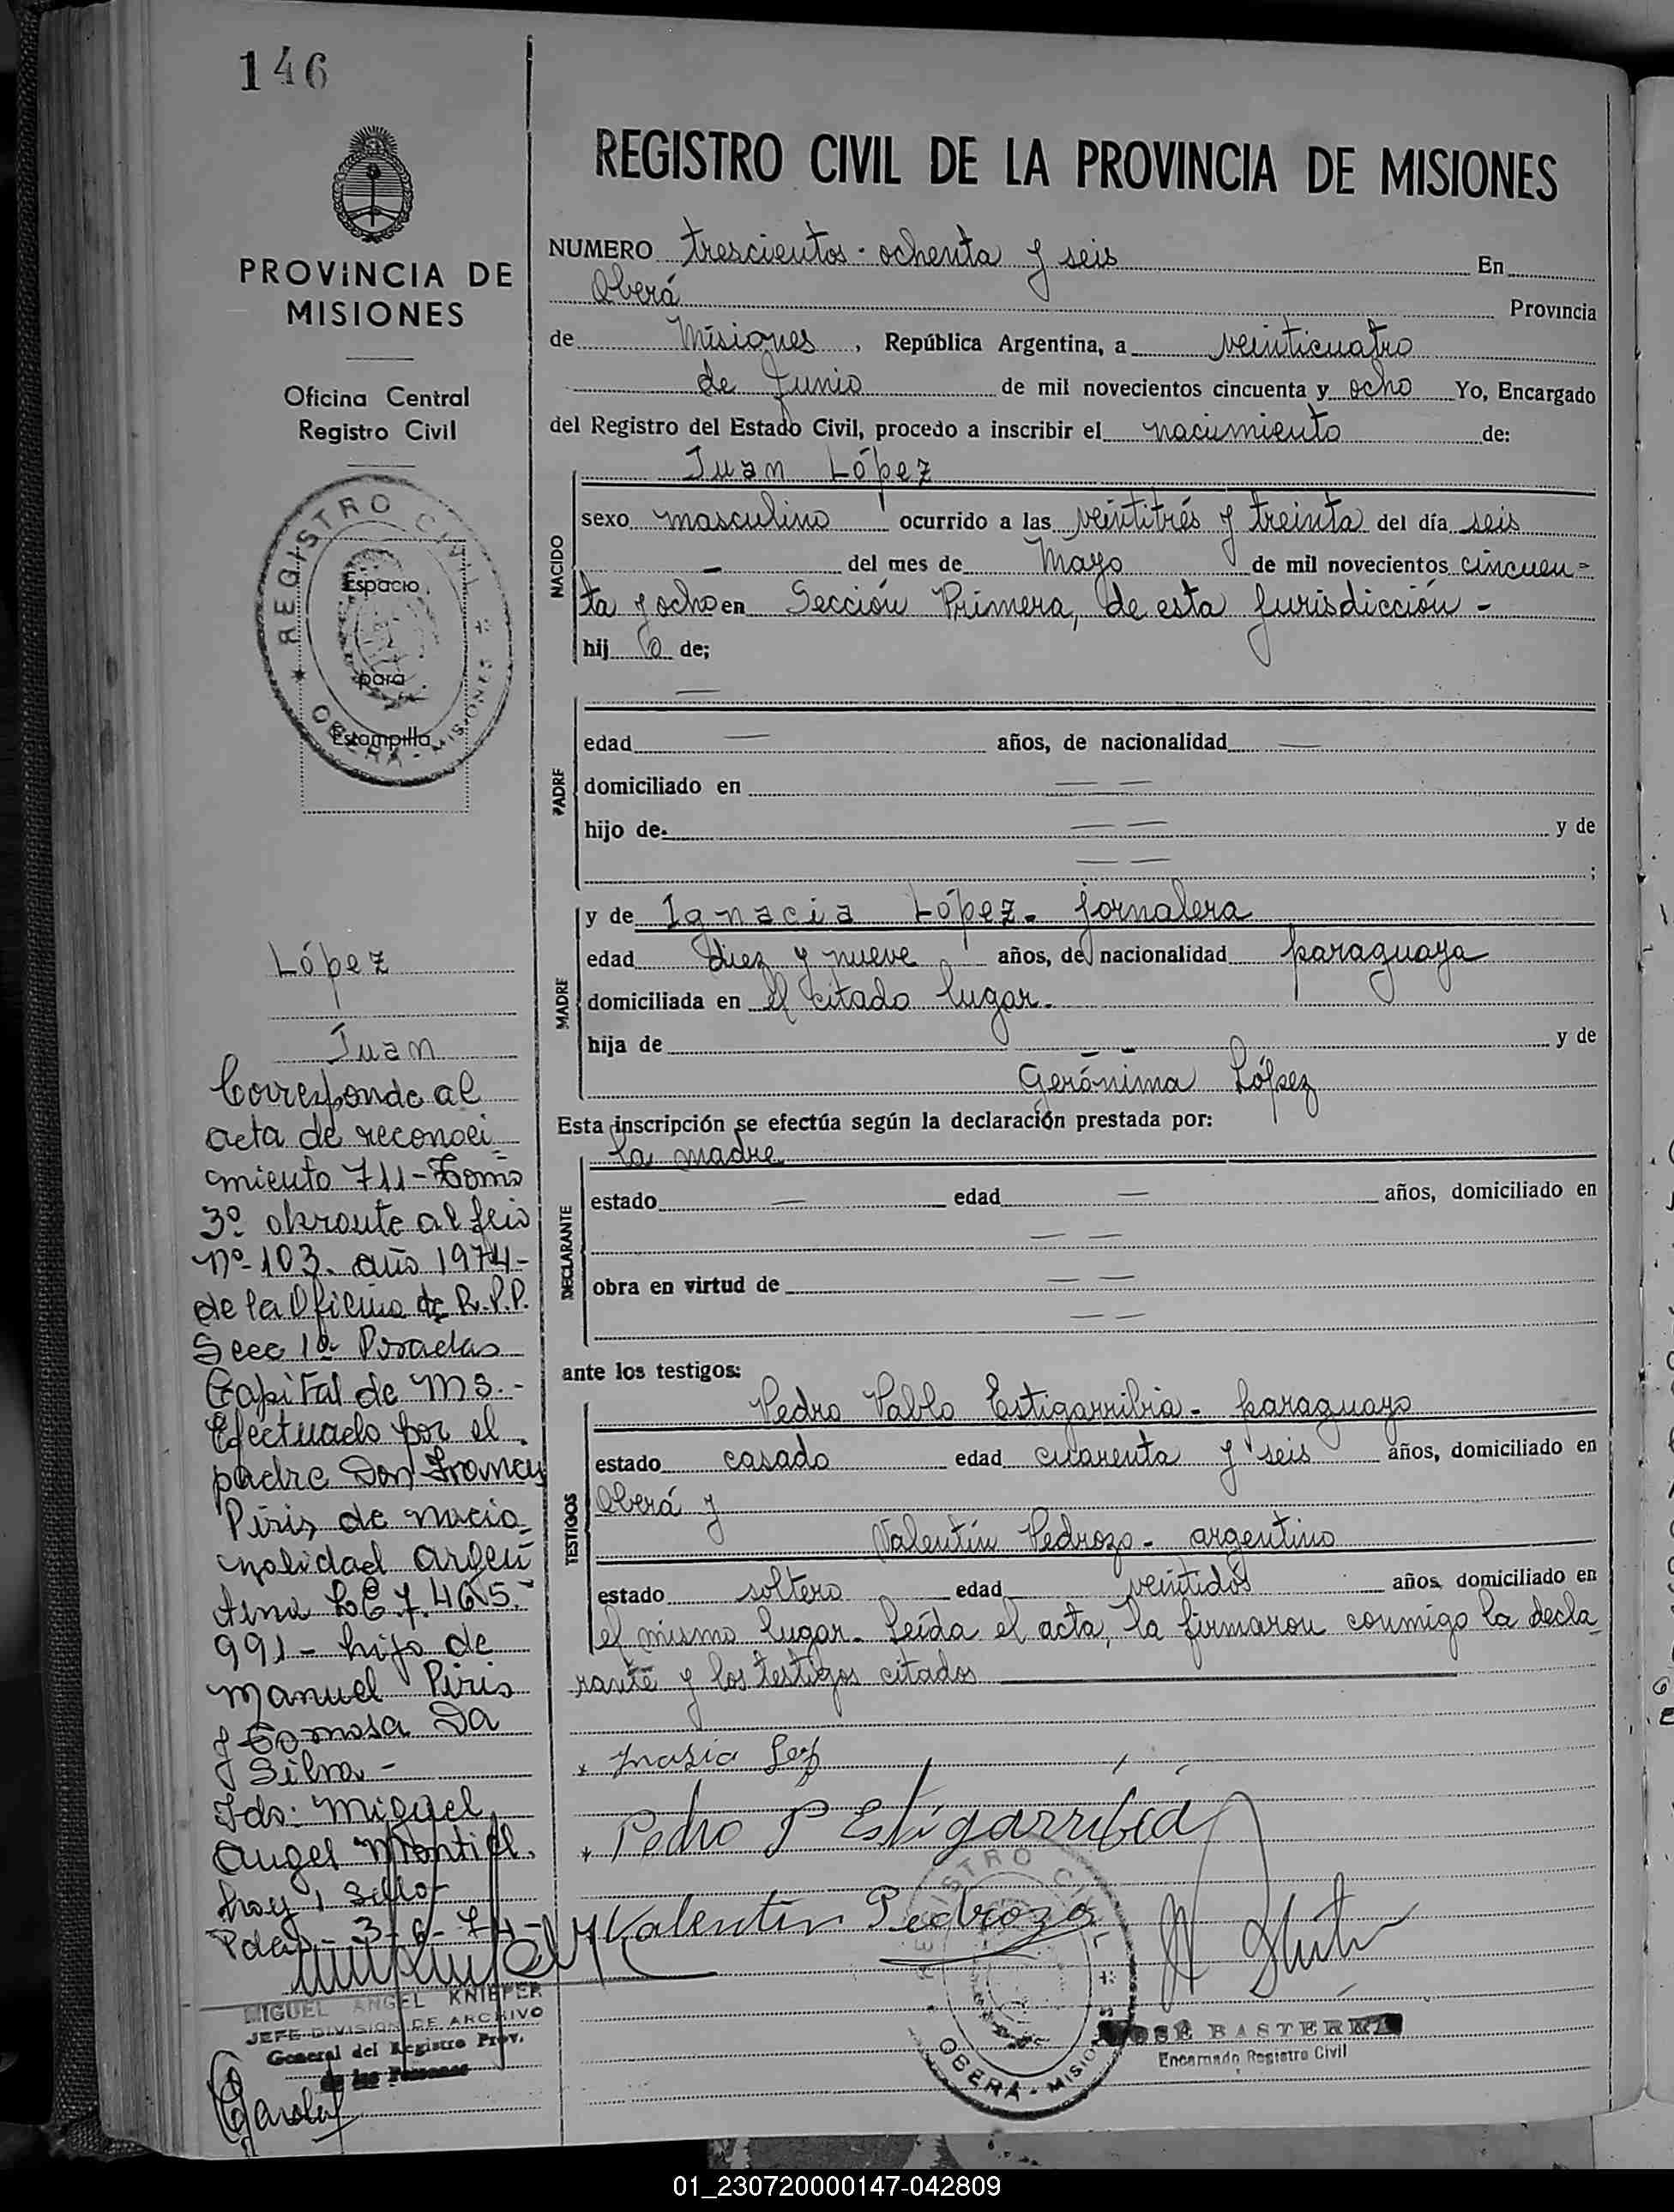 146
PROVINCIA DE
MISIONES
Oficina Central
Registro Civil
REGISTRO CIVIL
Espacio
para
Estampilla
OBERA - MISIONES
López
Juan
Corresponde al
acta de reconoci
miento 711 - Tomo
3º obrante al feio
nº 103. año 1974 -
de la Oficina de R.P.P.
Secc 1ª Posadas
Capital de Ms. -
Efectuado por el
padre Don
Piris de nacio
nalidad argen
tina LE 7.465.-
991 - hijo de
Manuel Piris
y Da
Silva -
Fdo: Miguel
Angel Montiel.
hay 1 sello
Pdas - 3-6-74-
MIGUEL ANGEL KNIEFER
JEFE DIVISION DE ARCHIVO
General del Registro Prov.
de las Personas
REGISTRO CIVIL DE LA PROVINCIA DE MISIONES
NUMERO trescientos - ochenta y seis En
Oberá Provincia
de Misiones, República Argentina, a veinticuatro
de Junio de mil novecientos cincuenta y ocho Yo, Encargado
del Registro del Estado Civil, procedo a inscribir el nacimiento de:
NACIDO
Juan López
sexo masculino ocurrido a las veintitrés y treinta del día seis
- del mes de Mayo de mil novecientos cincuen=
ta y ocho en Sección Primera, de esta Jurisdicción -
hij o de;
PADRE
—
edad — años, de nacionalidad —
domiciliado en — —
hijo de: — — y de
— — ;
MADRE
y de Ignacia López - jornalera
edad diez y nueve años, de nacionalidad paraguaya
domiciliada en el citado lugar.
hija de — — y de
Gerónima López
Esta inscripción se efectúa según la declaración prestada por:
DECLARANTE
la madre
estado — edad — años, domiciliado en
— —
obra en virtud de — —
— —
ante los testigos:
TESTIGOS
Pedro Pablo Estigarribia - paraguayo
estado casado edad cuarenta y seis años, domiciliado en
Oberá y
Valentín Pedrozo - argentino
estado soltero edad veintidos años, domiciliado en
el mismo lugar. Leída el acta, la firmaron conmigo la decla
rante y los testigos citados
Pedro P Estigarribia
Valentin Pedrozo
REGISTRO CIVIL
OBERA - MISIONES
JOSÉ BASTERRA
Encargado Registro Civil
01_230720000147-042809